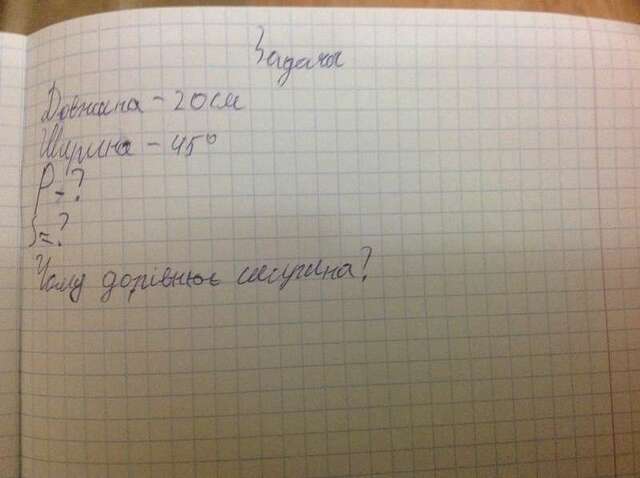 Задача
Довжина - 20см
Ширина - 45°
P - ?
S = ?
Чому дорівнює ширина?